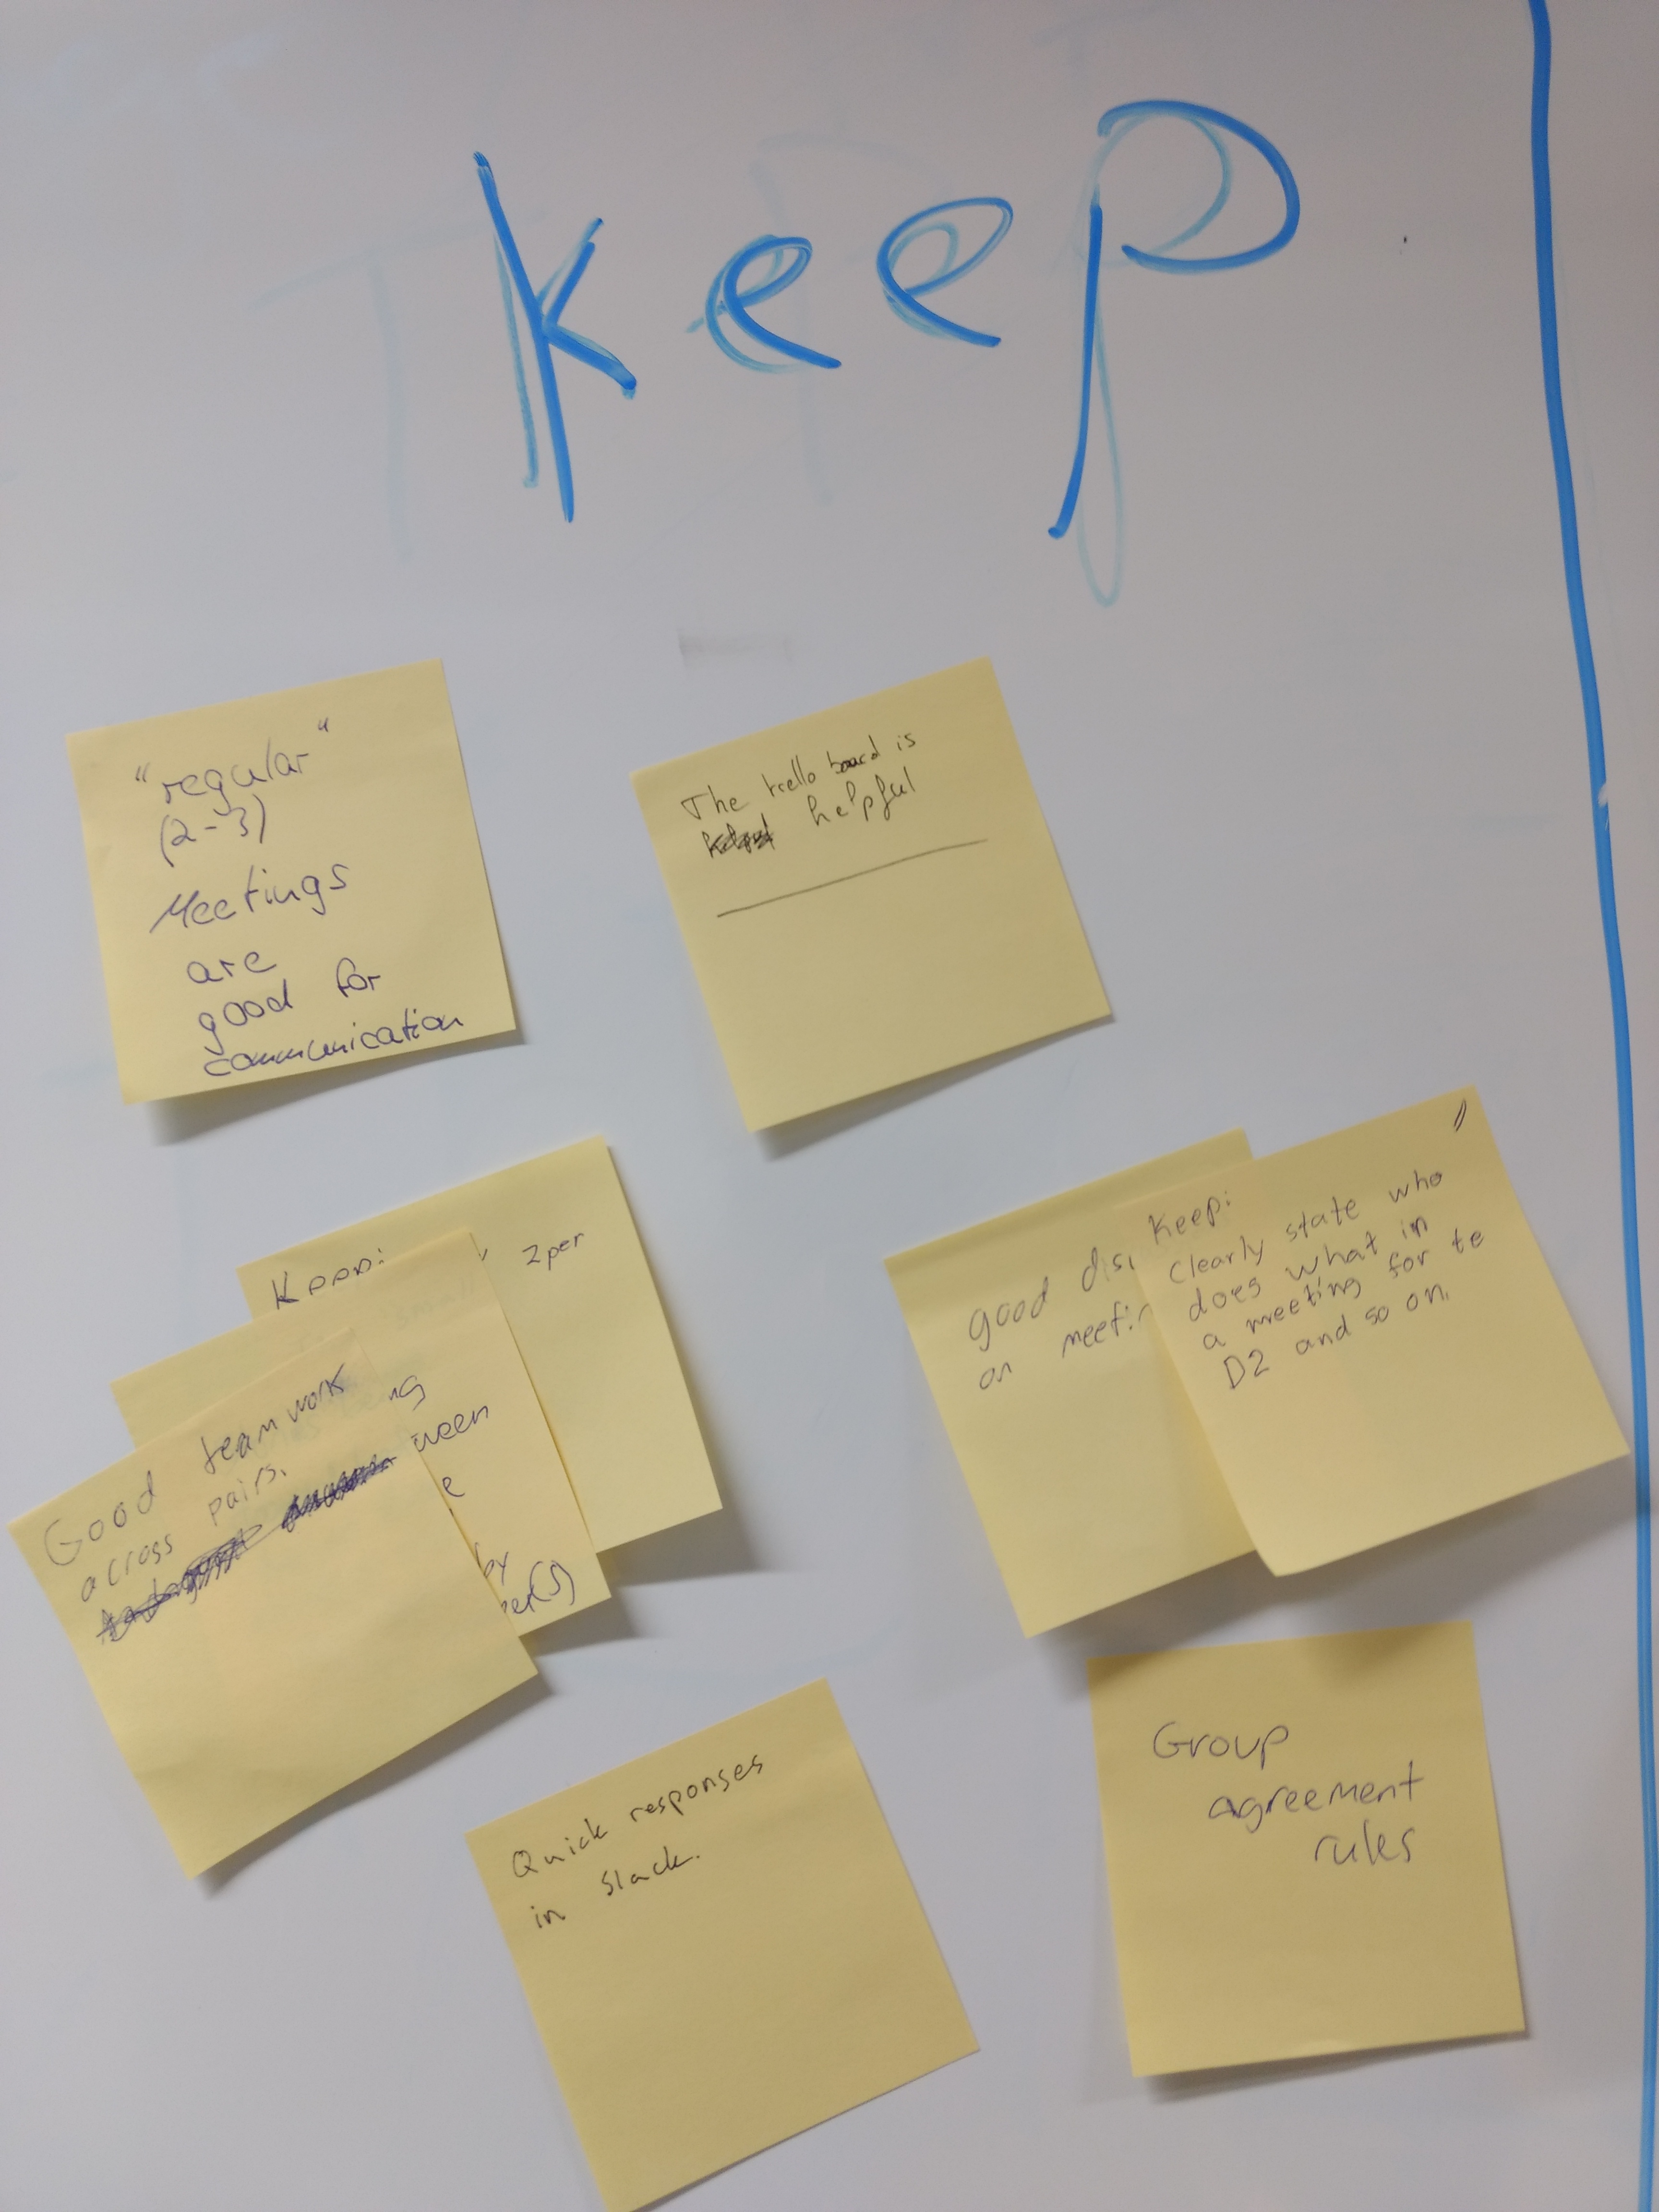 Keep
"regular"
(2-3)
Meetings
are
good for
communication
The trello board is
helpful
Keep:
2 per
Good team work
across pairs.
by
good
on
Keep:
clearly state who
does what in
a meeting for te
D2 and so on.
Quick responses
in slack.
Group
agreement
rules